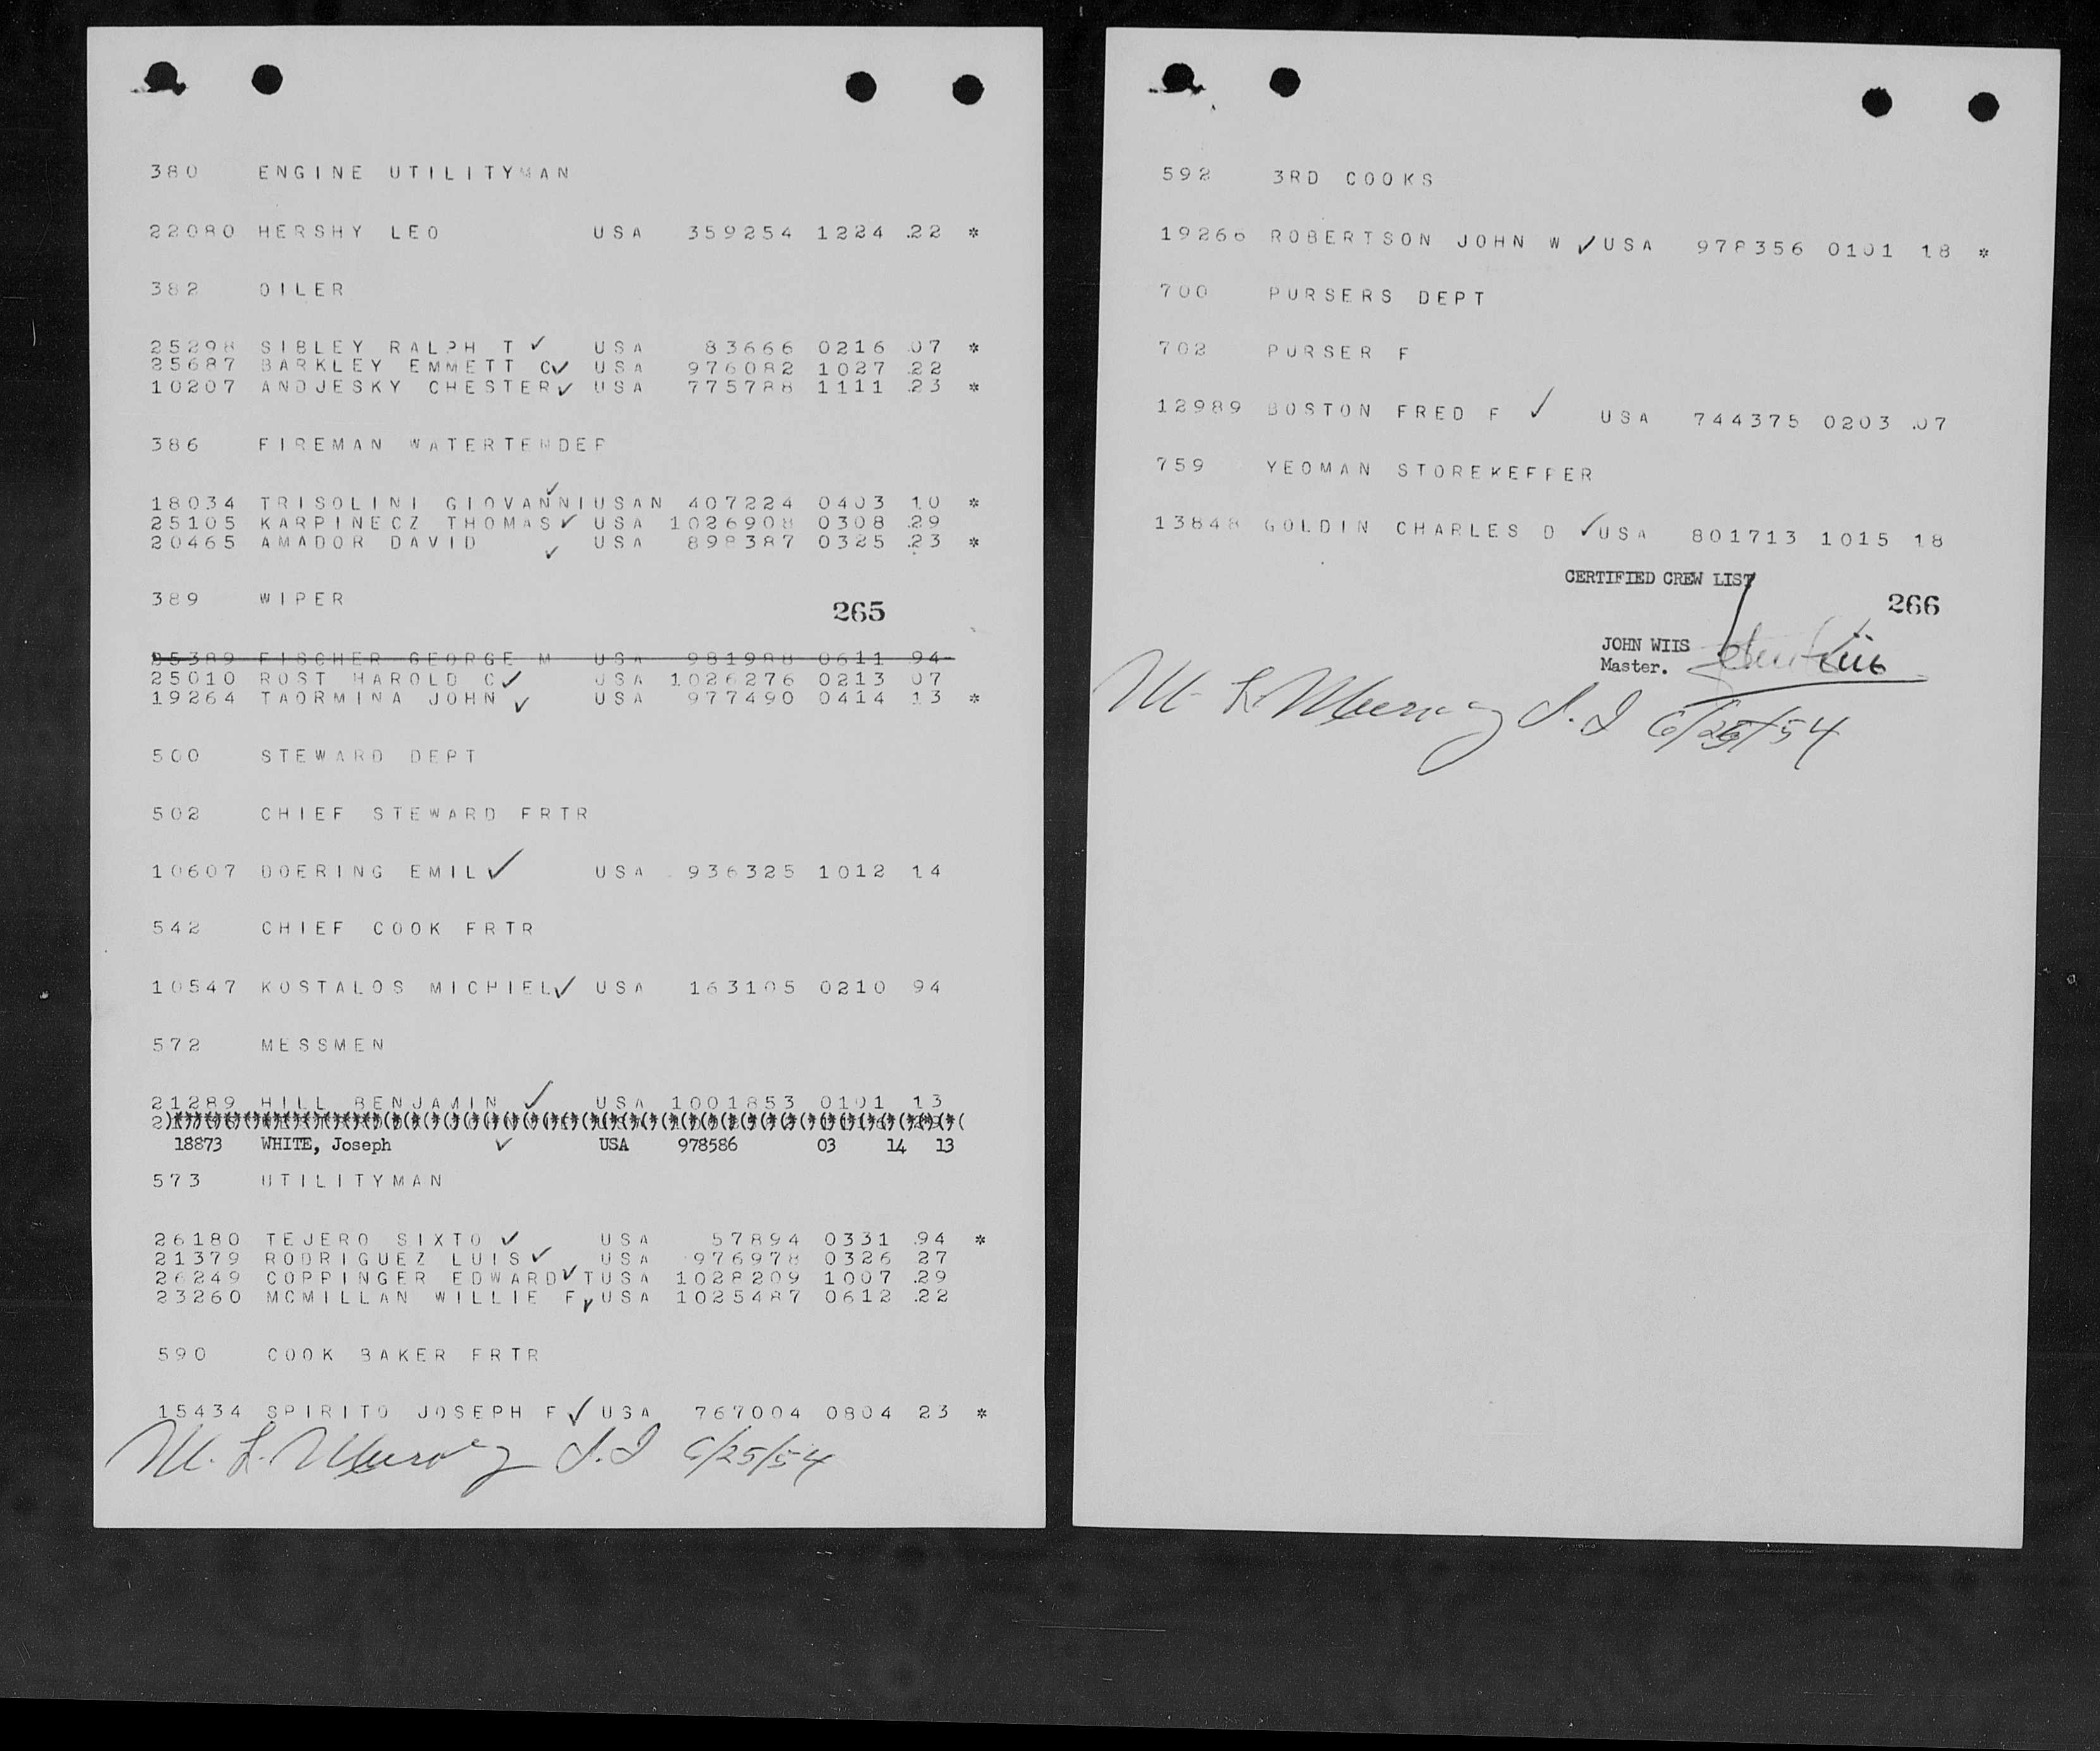 380 ENGINE UTILITYMAN
22080 HERSHY LEO USA 359254 1224 .22 *
382 OILER
25298 SIBLEY RALPH T ✓ USA 83666 0216 .07 *
25687 BARKLEY EMMETT C✓ USA 976082 1027 .22
10207 ANDJESKY CHESTER✓ USA 775788 1111 .23 *
386 FIREMAN WATERTENDER
18034 TRISOLINI GIOVANNIUSAN 407224 0403 10 *
25105 KARPINECZ THOMAS✓ USA 1026908 0308 .29
20465 AMADOR DAVID ✓ USA 898387 0325 .23 *
389 WIPER
265
25389 FISCHER GEORGE M USA 981988 0611 94
25010 ROST HAROLD C✓ USA 1026276 0213 07
19264 TAORMINA JOHN ✓ USA 977490 0414 13 *
500 STEWARD DEPT
502 CHIEF STEWARD FRTR
10607 DOERING EMIL✓ USA 936325 1012 14
542 CHIEF COOK FRTR
10547 KOSTALOS MICHIEL✓ USA 163105 0210 94
572 MESSMEN
21289 HILL BENJAMIN ✓ USA 1001853 0101 13
18873 WHITE, Joseph ✓ USA 978586 03 14 13
573 UTILITYMAN
26180 TEJERO SIXTO ✓ USA 57894 0331 .94 *
21379 RODRIGUEZ LUIS✓ USA 976978 0326 27
26249 COPPINGER EDWARD✓TUSA 1028209 1007 .29
23260 MCMILLAN WILLIE F✓USA 1025487 0612 .22
590 COOK BAKER FRTR
15434 SPIRITO JOSEPH F✓USA 767004 0804 23 *
M. L. Murray I.I 6/25/54
592 3RD COOKS
19266 ROBERTSON JOHN W ✓USA 978356 0101 18 *
700 PURSERS DEPT
702 PURSER F
12989 BOSTON FRED F ✓ USA 744375 0203 .07
759 YEOMAN STOREKEEPER
13848 GOLDIN CHARLES D ✓USA 801713 1015 18
CERTIFIED CREW LIST
266
JOHN WIIS John Wiis
Master.
M. L. Murray I.I 6/25/54